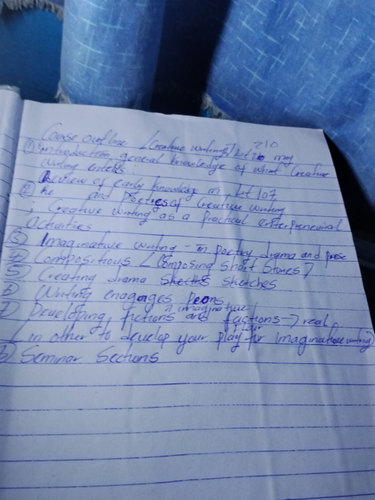 Course outline (Creative writing) Lit 210
(1) introduction, general knowledge of what Creative
writing entails.
Review of early knowledge in Lit 107
(2) and Poetics of Creative Writing
: Creative Writing as a Practical enterprenenial
activities
(3) Imaginative writing - in poetry, drama and prose
(4) Compositions (Composing Short Stories)
(5) Creating drama Sketches
(6) Writing enagages
(7) Developing fictions and fuctions → real
imaginative
(in other to develop your play for imaginative writing)
(8) Seminar Sections